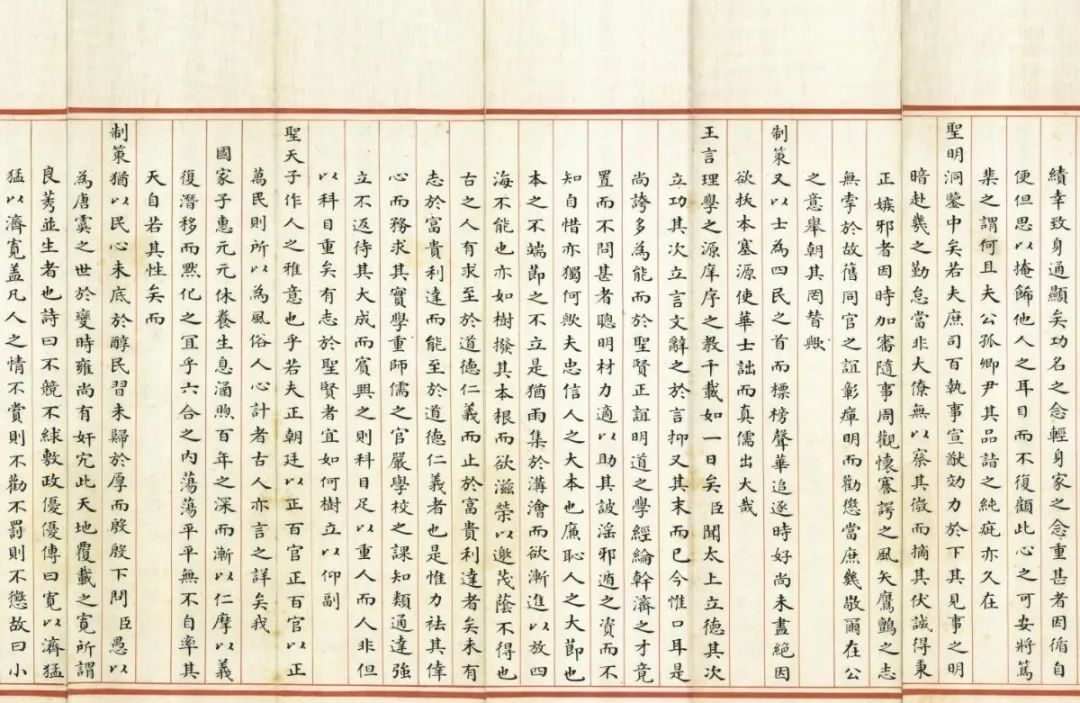 績幸致身通顯矣功名之念輕身家之念重甚者因循自
便但思以掩飾他人之耳目而不復顧此心之可安將篤
棐之謂何且夫公孤卿尹其品詣之純疵亦久在
聖明洞鑒中矣若夫庶司百執事宣猷効力於下其見事之明
暗赴幾之勤怠當非大僚無以察其微而摘其伏誠得秉
正嫉邪者因時加審隨事周觀懷謇諤之風矢鷹鸇之志
無牽於故舊同官之誼彰癉明而勸懲當庶幾敬爾在公
之意舉朝其罔替歟
制策又以士為四民之首而標榜聲華追逐時好尚未盡絕因
欲扶本塞源使華士詘而真儒出大哉
王言理學之源庠序之教千載如一日矣臣聞太上立德其次
立功其次立言文辭之於言抑又其末而已今惟口耳是
尚誇多為能而於聖賢正誼明道之學經綸幹濟之才竟
置而不問甚者聰明材力適以助其詖淫邪遁之資而不
知自惜亦獨何歟夫忠信人之大本也廉恥人之大節也
本之不端節之不立是猶雨集於溝澮而欲漸進以放四
海不能也亦如樹撥其本根而欲滋榮以邀茂蔭不得也
古之人有求至於道德仁義而止於富貴利達者矣未有
志於富貴利達而能至於道德仁義者也是惟力祛其偉
心而務求其實學重師儒之官嚴學校之課知類通達強
立不返待其大成而賓興之則科目足以重人而人非但
以科目重矣有志於聖賢者宜如何樹立以仰副
聖天子作人之雅意也乎若夫正朝廷以正百官正百官以正
萬民則所以為風俗人心計者古人亦言之詳矣我
國家子惠元元休養生息涵煦百年之深而漸以仁摩以義
復潛移而默化之宜乎六合之內蕩蕩平平無不自率其
天自若其性矣而
制策猶以民心未底於醇民習未歸於厚而殷殷下問臣愚以
為唐虞之世於變時雍尚有奸宄此天地覆載之寬所謂
良莠並生者也詩曰不競不絿敷政優優傳曰寬以濟猛
猛以濟寬蓋凡人之情不賞則不勸不罰則不懲故曰小